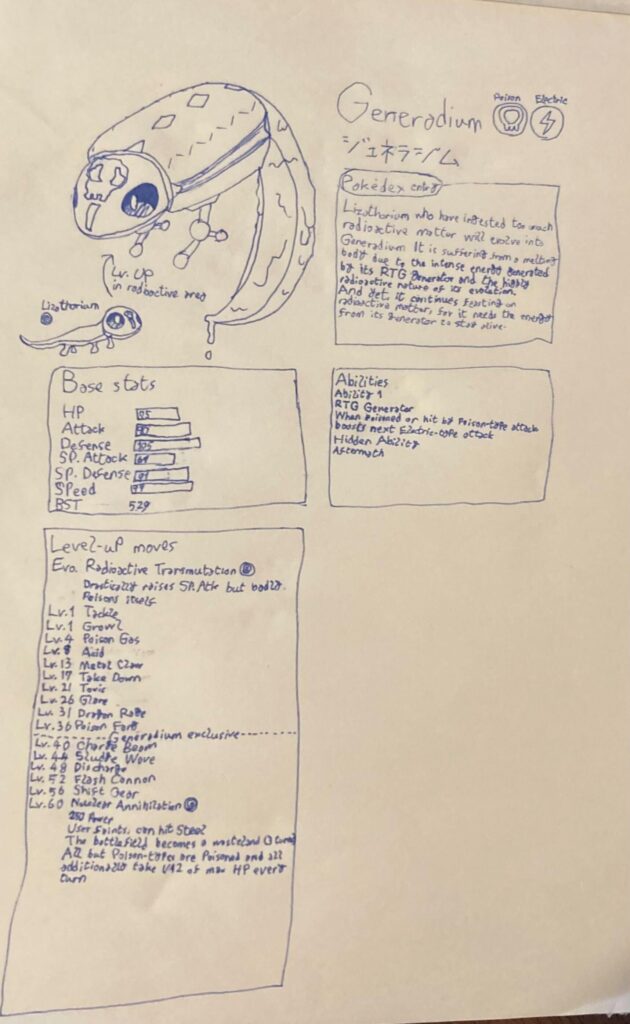 Generadium
Poison
Electric
ジェネラジム
Pokédex entry
Lizathorium who have ingested too much
radioactive matter will evolve into
Generadium. It is suffering from a melting
body due to the intense energy generated
by its RTG Generator and the highly
radioactive nature of its evolution.
And yet, it continues feasting on
radioactive matter, for it needs the energy
from its generator to stay alive.
Lv. UP
in radioactive area
Lizathorium
Base stats
HP
Attack
Defense 105
SP. Attack
SP. Defense
Speed
BST 529
Abilities
Ability 1
RTG Generator
When Poisoned or hit by Poison-type attack
boosts next Electric-type attack
Hidden Ability
Aftermath
Level-up moves
Evo. Radioactive Transmutation
Drastically raises SP.Atk but badly
Poisons itself
Lv.1 Tackle
Lv.1 Growl
Lv.4 Poison Gas
Lv. Acid
Lv.13 Metal Claw
Lv.17 Take Down
Lv.21 Toxic
Lv.26 Glare
Lv.31 Dragon Rage
Lv.36 Poison Fang
Generadium exclusive
Lv.40 Charge Beam
Lv.44 Sludge Wave
Lv.48 Discharge
Lv.52 Flash Cannon
Lv.56 Shift Gear
Lv.60 Nuclear Annihilation
250 Power
User faints, can hit Steel
The battlefield becomes a wasteland
All but Poison-types are Poisoned and all
additionally take of max HP every
turn